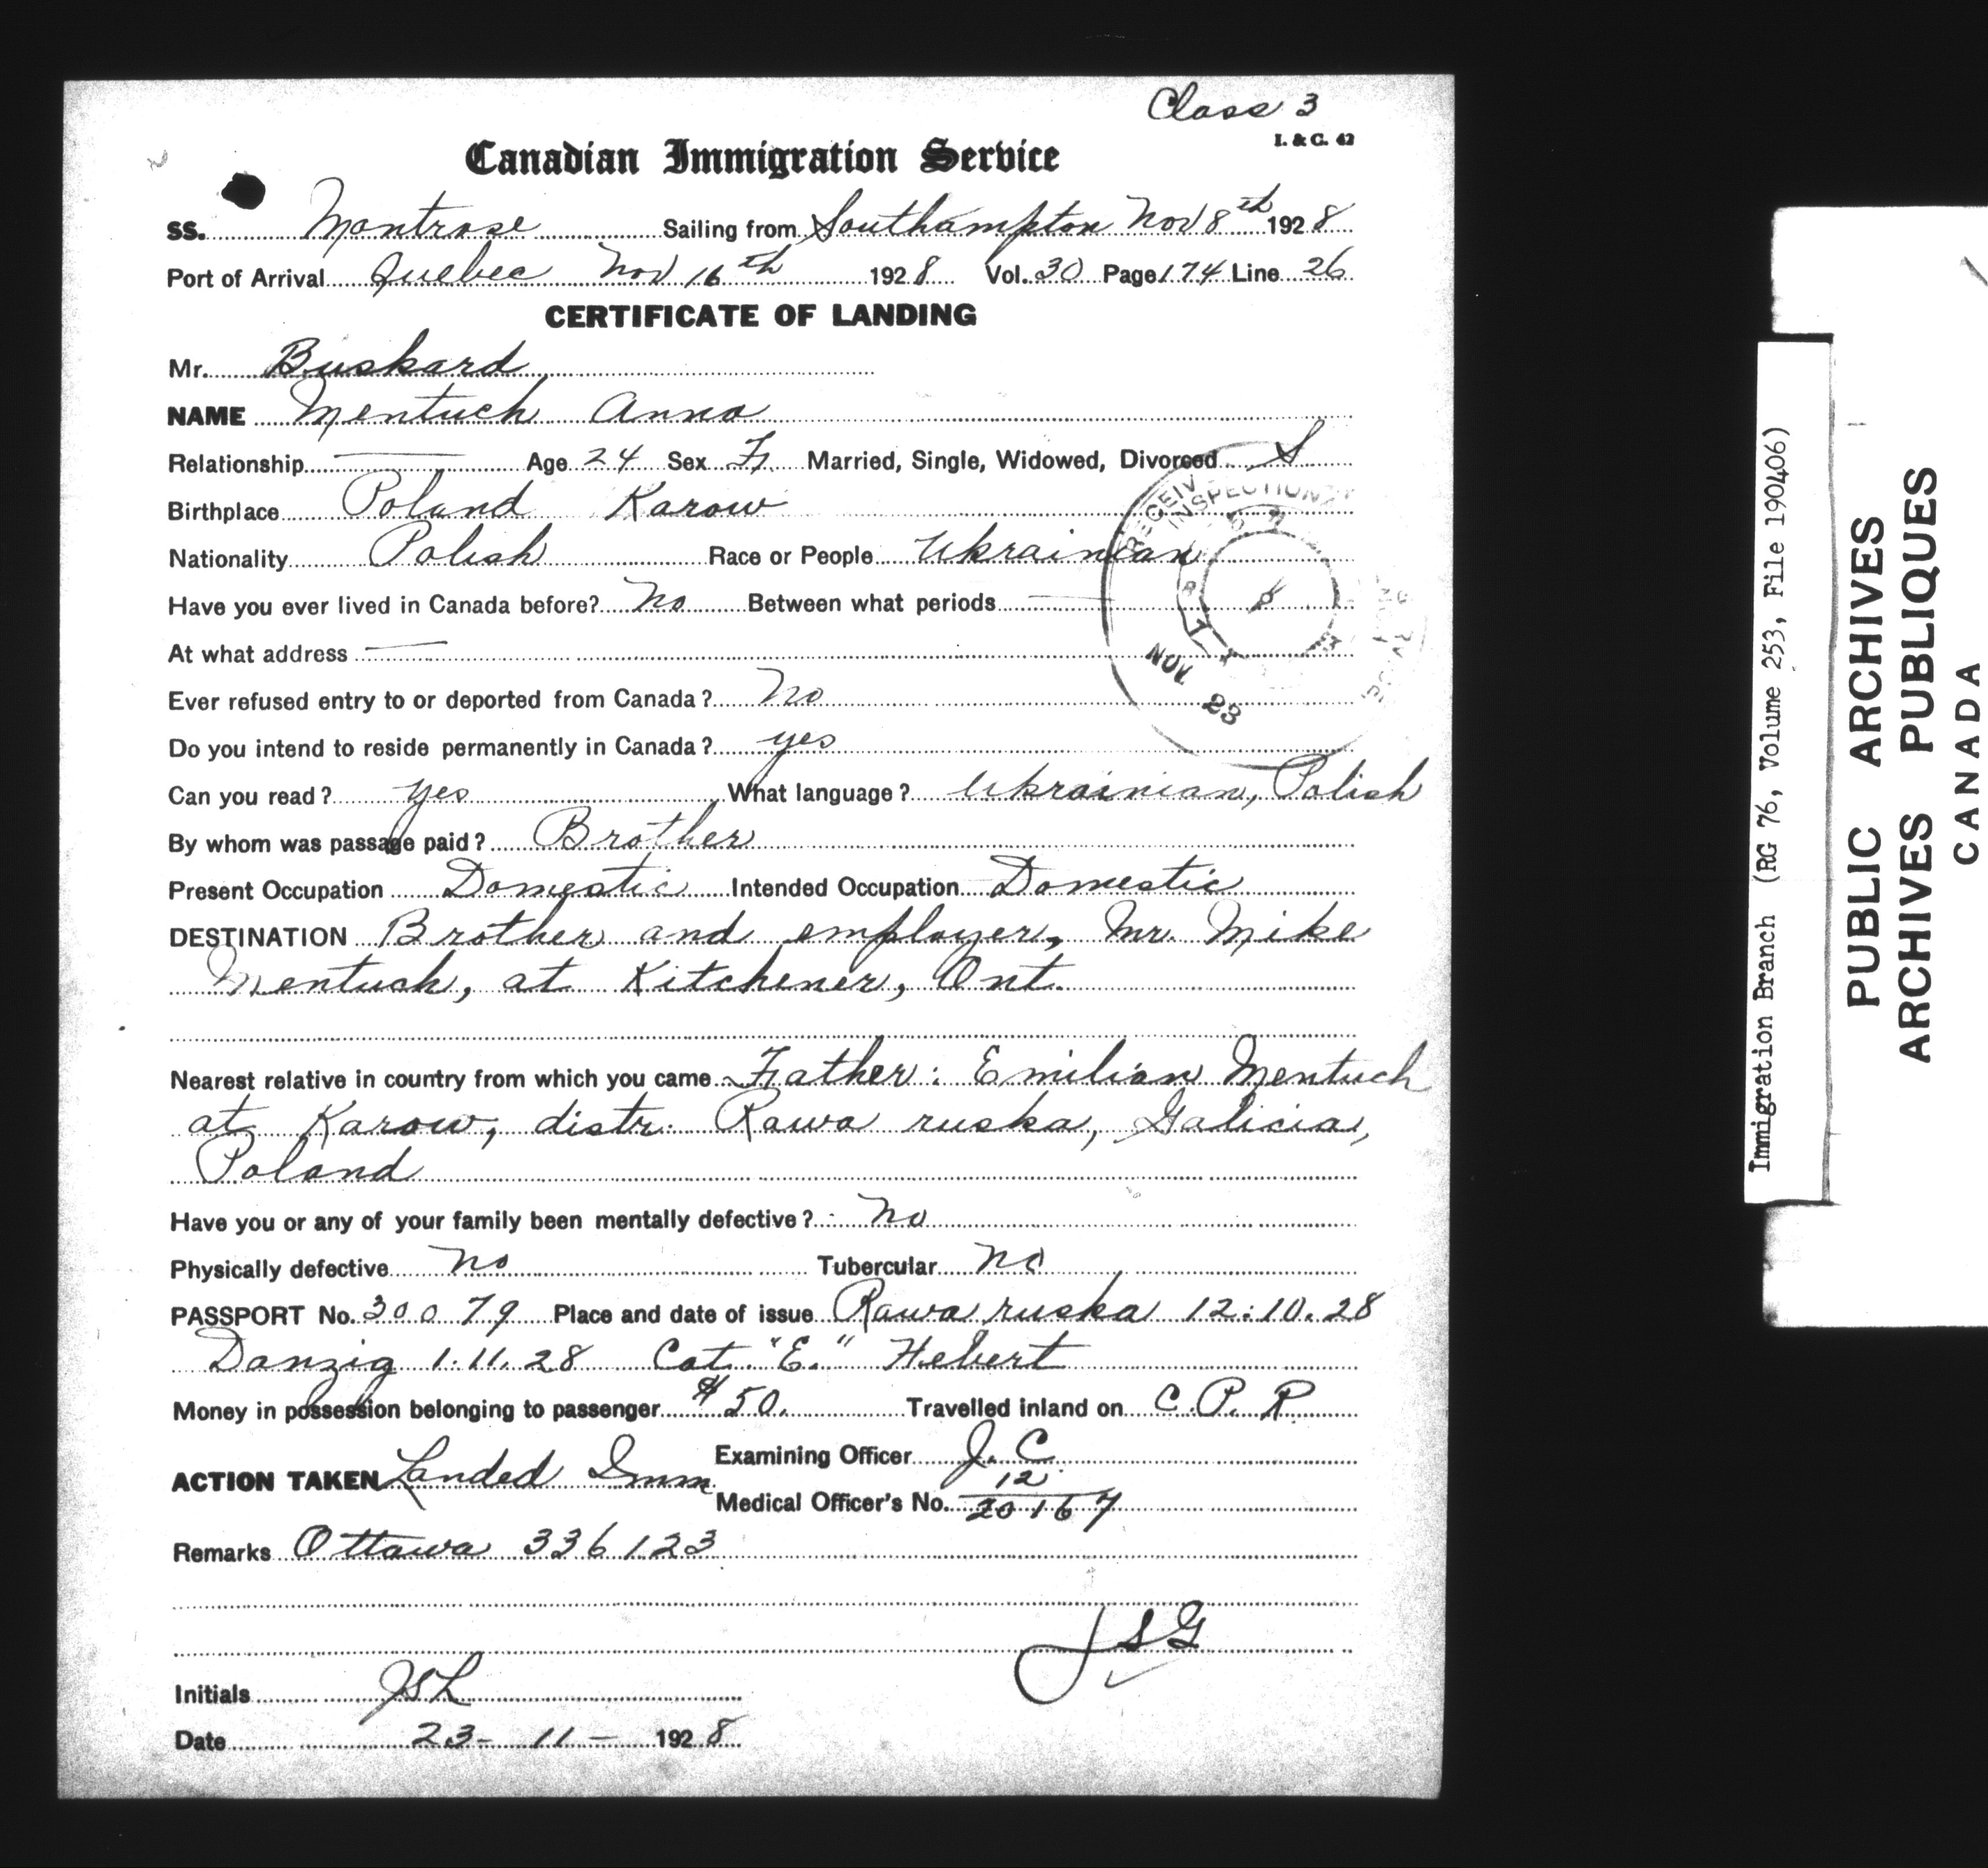 Class 3
I. & C. 42
Canadian Immigration Service
SS. Montrose Sailing from Southampton Nov 8th 1928
Port of Arrival Quebec Nov 16th 1928 Vol. 30 Page 174 Line 26
CERTIFICATE OF LANDING
Mr. Buskard
NAME Mentuch Anna
Relationship — Age 24 Sex F. Married, Single, Widowed, Divorced S
Birthplace Poland Karow
Nationality Polish Race or People Ukrainian
Have you ever lived in Canada before? No Between what periods —
At what address —
Ever refused entry to or deported from Canada? No
Do you intend to reside permanently in Canada? yes
Can you read? yes What language? Ukrainian, Polish
By whom was passage paid? Brother
Present Occupation Domestic Intended Occupation Domestic
DESTINATION Brother and employer, Mr. Mike
Mentuch, at Kitchener, Ont.
Nearest relative in country from which you came Father: Emilian Mentuch
at Karow, distr. Rawa ruska, Galicia,
Poland
Have you or any of your family been mentally defective? No
Physically defective No Tubercular No
PASSPORT No. 30079 Place and date of issue Rawa ruska 12.10.28
Danzig 1.11.28 Cat. "E." Hebert
Money in possession belonging to passenger $50. Travelled inland on C.P.R
ACTION TAKEN Landed Imm Examining Officer J.C.
Medical Officer's No. 12/20167
Remarks Ottawa 336123
JSG
Initials JSL
Date 23-11-1928
RECEIV
INSPECTION
NOV 23
Immigration Branch (RG 76, Volume 253, File 190406)
PUBLIC ARCHIVES
ARCHIVES PUBLIQUES
CANADA